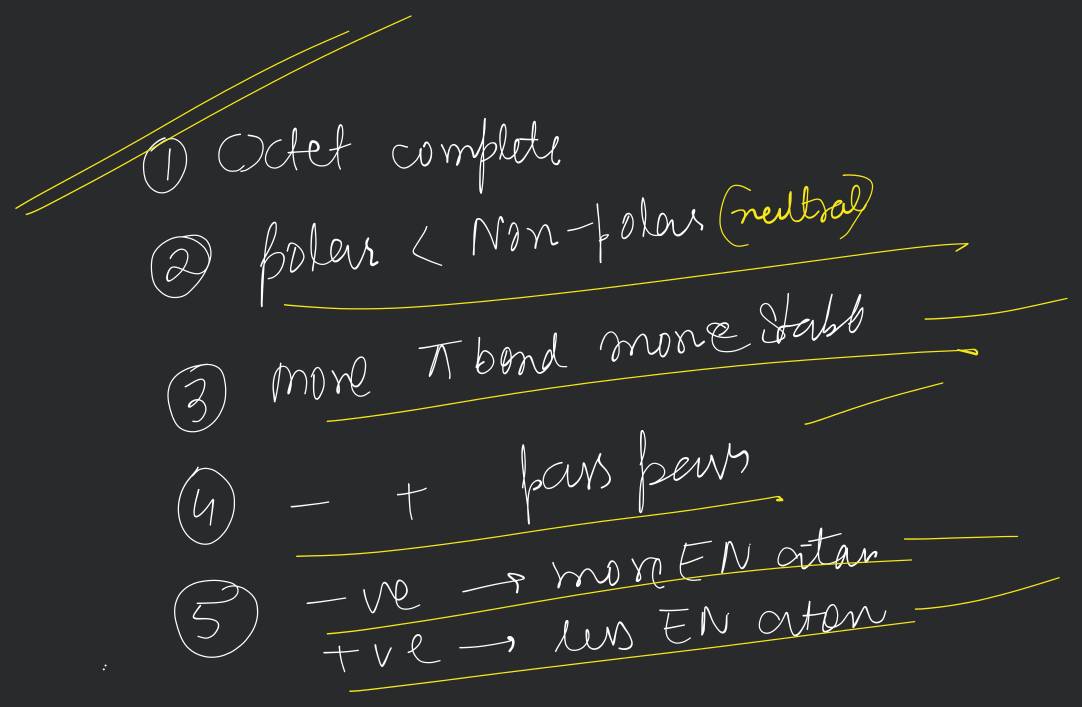 ① Octet complete
② polar < Non-polar (neutral)
③ more π bond more stable
④ - + pass pass
⑤ -ve → more EN atom
+ve → less EN atom